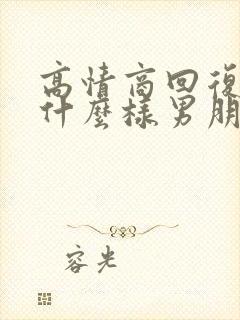 高情商回復
什麼樣男朋
容光